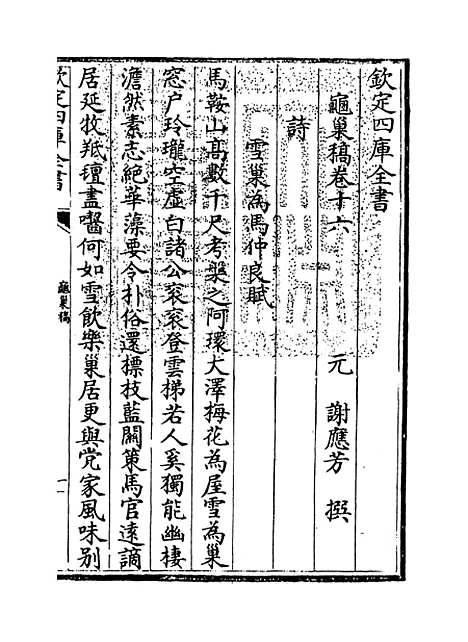 欽定四庫全書
龜巢稿卷十六
元 謝應芳 撰
詩
雪巢為馬仲良賦
馬鞍山髙數千尺考槃之阿環大澤梅花為屋雪為巢
窓户玲瓏空虛白諸公衮衮登雲梯若人奚獨能幽棲
澹然素志絶華藻要令朴俗還標技藍闗策馬官逺謫
居延牧羝氊盡嚙何如雪飲樂巢居更與党家風味别
欽定四庫全書
龜巢稿
一